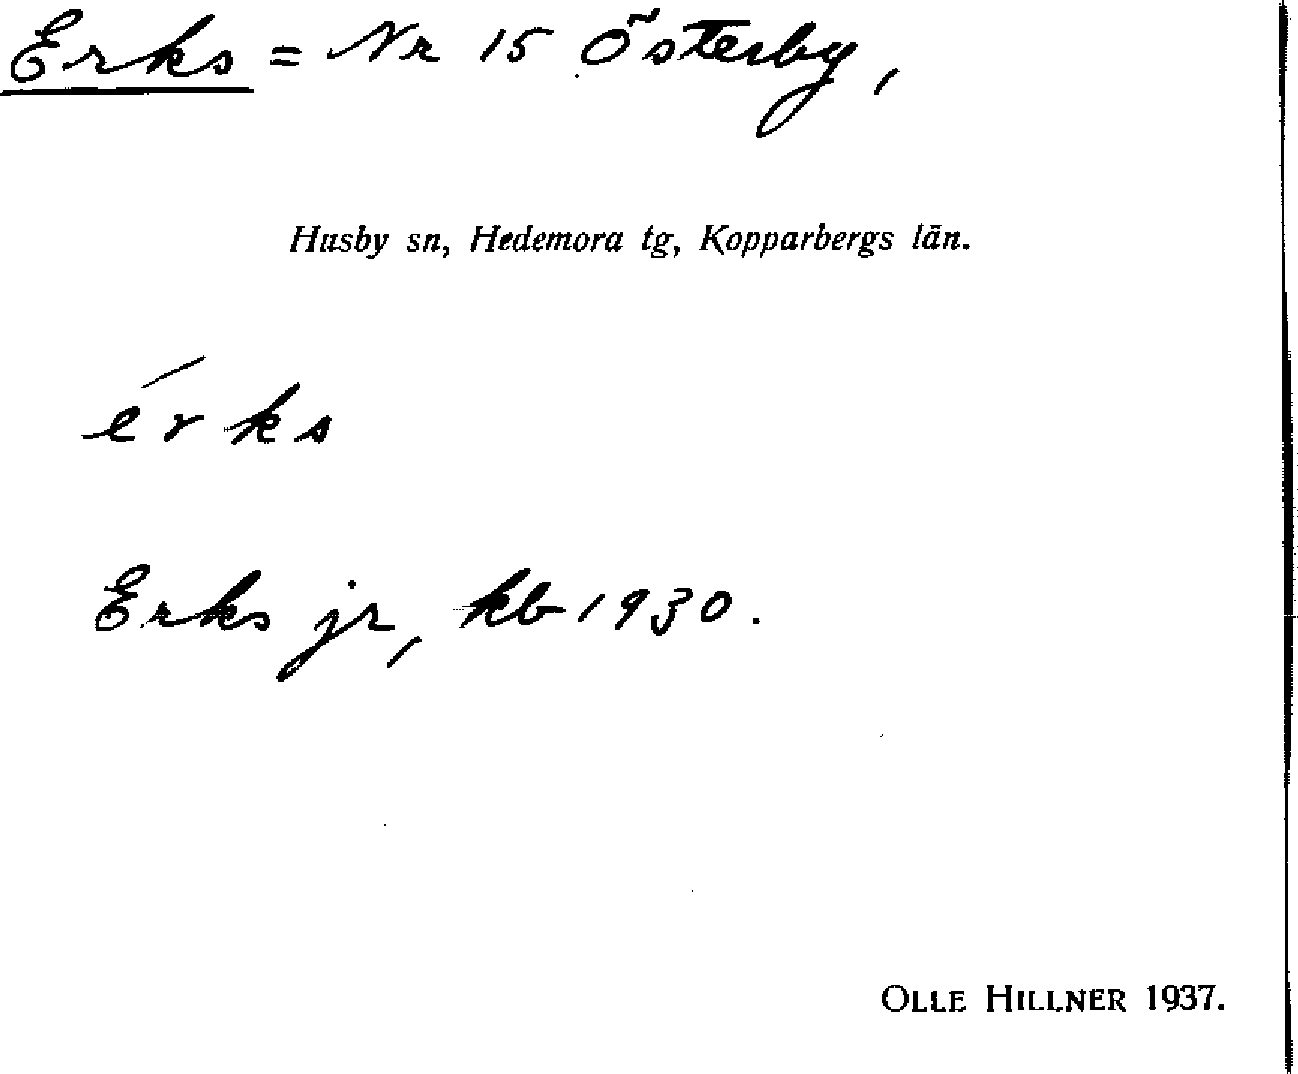 Erks = Nr 15 Österby,
Husby sn, Hedemora tg, Kopparbergs län.
érks
Erks jr, kb 1930.
OLLE HILLNER 1937.